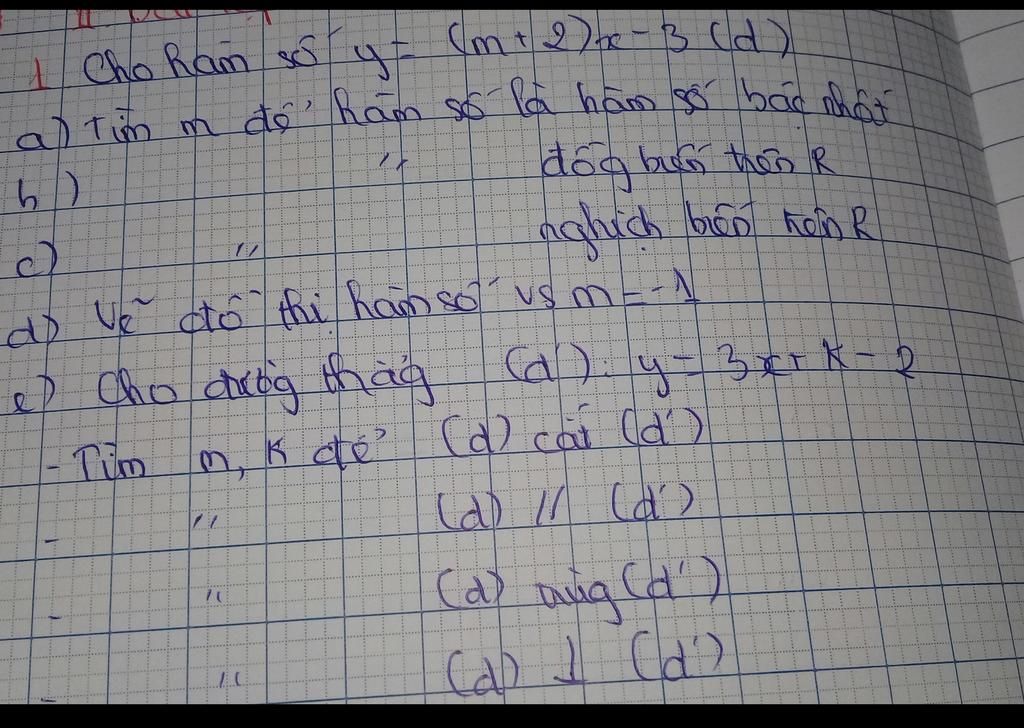 1 Cho hàm số y = (m + 2)x - 3 (d)
a) Tìm m để hàm số là hàm số bậc nhất
b) " đồg biến trên R
c) " nghịch biến trên R
d) Vẽ đồ thị hàm số vs m = -1
e) Cho đườg thẳg (d'): y = 3x + k - 2
- Tìm m, k để (d) cắt (d')
- " (d) // (d')
- " (d) trùg (d')
- " (d) ⊥ (d')